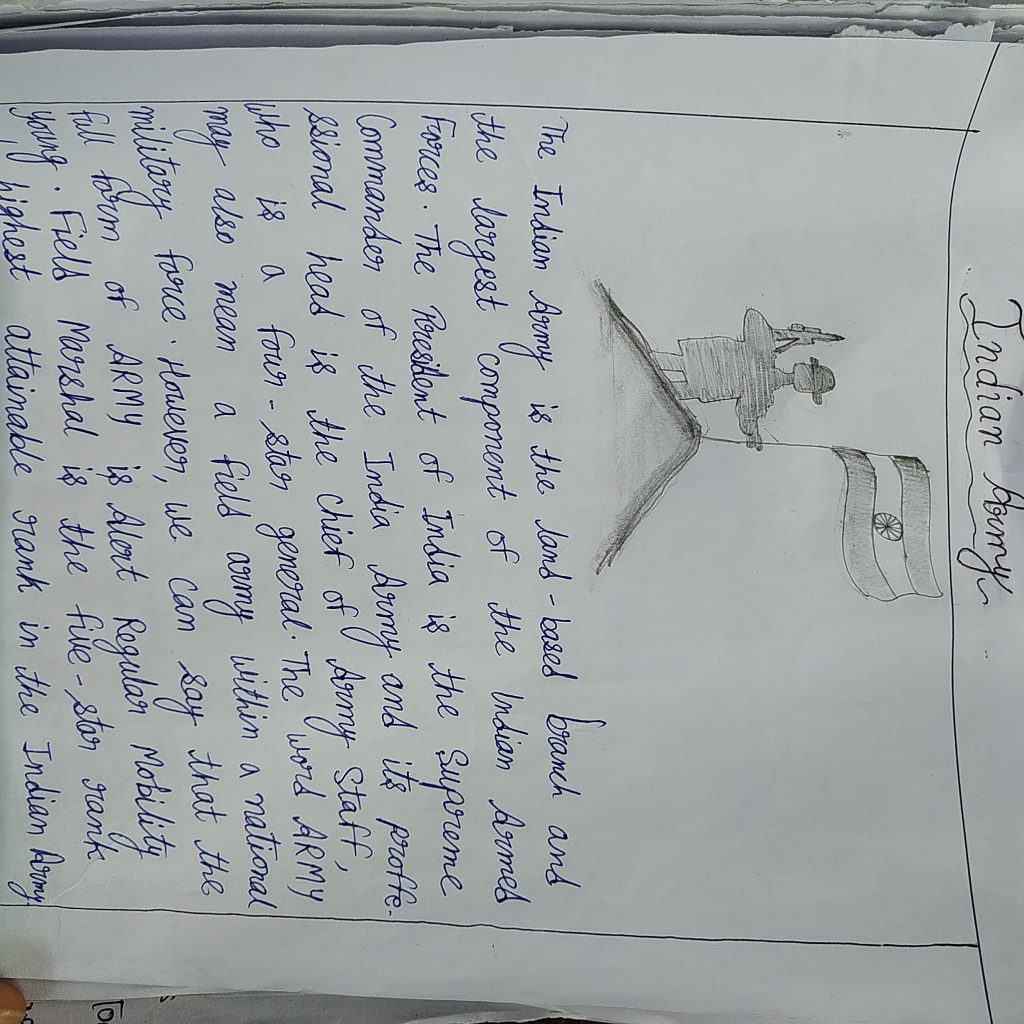 Indian Army
The Indian Army is the land-based branch and
the largest component of the Indian Armed
Forces. The President of India is the Supreme
Commander of the India Army and its proffe-
ssional head is the chief of Army Staff,
who is a four-star general. The word ARMY
may also mean a field army within a national
military force. However, we can say that the
full form of ARMY is Alert Regular Mobility
young. Field Marshal is the five-star rank
highest attainable rank in the Indian Army